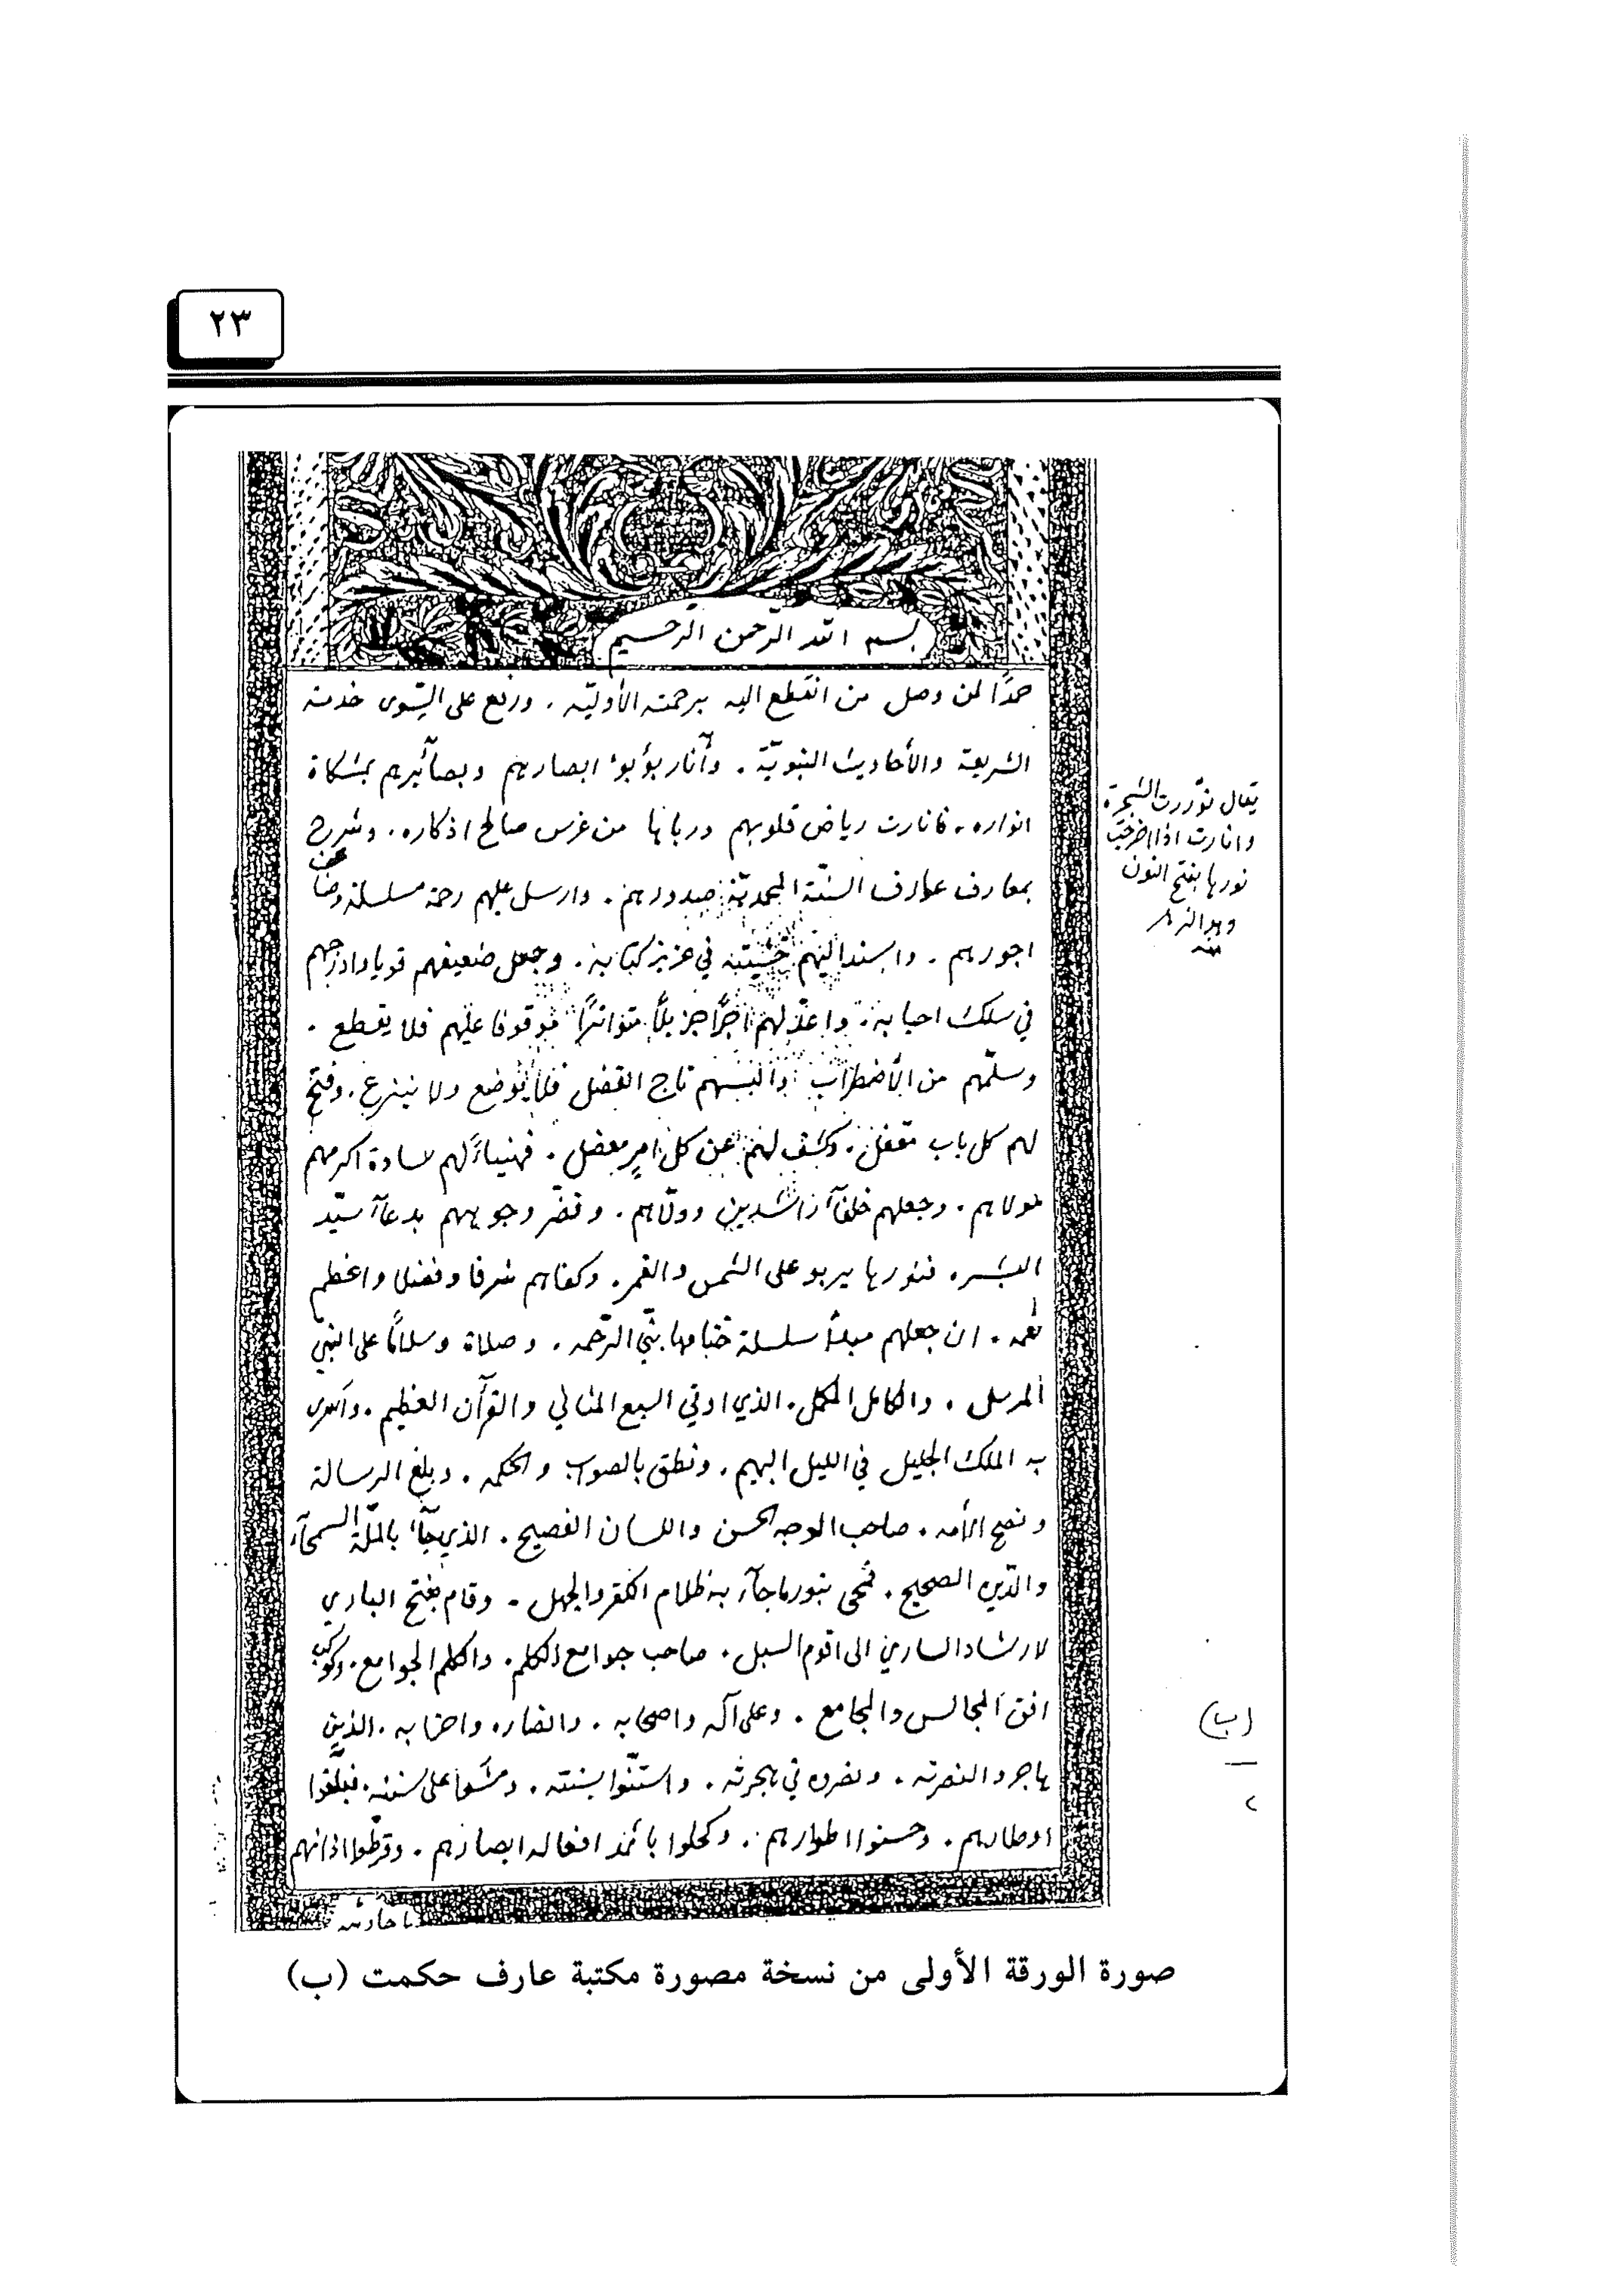 ٢٣
بسم الله الرحمن الرحيم
حمدًا لمن وصل من انقطع اليه برحمته الأوليّه . ورفع على السّوى خدمة
الشريعة والأحاديث النبويّة . وأنار بؤبؤ ابصارهم وبصآئرهم بمشكاة
انواره . فانارت رياض قلوبهم ورباها من غرس صالح اذكاره . وشرح
بمعارف عوارف السنّة المحمديّة صدورهم . وارسل عليهم رحمة مسلسلة وضاعف
اجورهم . واسند اليهم خشيته في عزيز كتابه . وجعل ضعيفهم قويا وادرجهم
في سلك احبابه . واعدّ لهم اجرًا جزيلًا متواترًا موقوفا عليهم فلا يقطع .
وسلّمهم من الأضطراب والبسهم تاج الفضل فلا يوضع ولا ينزع . وفتح
لهم كل باب مقفل . وكشف لهم عن كل امر معضل . فهنياءً لهم سادة اكرمهم
مولاهم . وجعلهم خلفآء راشدين وولّاهم . ونضّر وجوههم بدعآء سيّد
البشر . فنورها يربو على الشمس والقمر . وكفاهم شرفا وفضلا واعظم
نعمه . ان جعلهم مبدأ سلسلة ختامها نبيّ الرّحمه . وصلاة وسلامًا على النبي
المرسل . والكامل المكمل . الذي اوتي السبع المثاني والقرآن العظيم . وأسرى
به الملك الجليل في الليل البهيم . ونطق بالصواب والحكمه . وبلغ الرسالة
ونصح الأمه . صاحب الوجه الحسن واللسان الفصيح . الذي جآء بالملّة السمحآء
والدّين الصحيح . فمحى بنور ماجآء به ظلام الكفر والجهل . وقام بفتح الباري
لارشاد الساري الى اقوم السبل . صاحب جوامع الكلم . والكلم الجوامع . وكوكب
افق المجالس والمجامع . وعلى آله واصحابه . وانصاره واحزابه . الذين
هاجروا لنصرته . ونصروه في هجرته . واستنّوا بسنته . ومشوا على سننه . فبلّغوا
اوطارهم . وحسنوا اطوارهم . وكحلوا باثمد افعاله ابصارهم . وقرطوا اذانهم
باحاديثه
يقال نوّرت الشجرة
وانارت اذا اخرجت
نورها بفتح النون
وهو الزهر
منه
(ب)
٢
صورة الورقة الأولى من نسخة مصورة مكتبة عارف حكمت (ب)